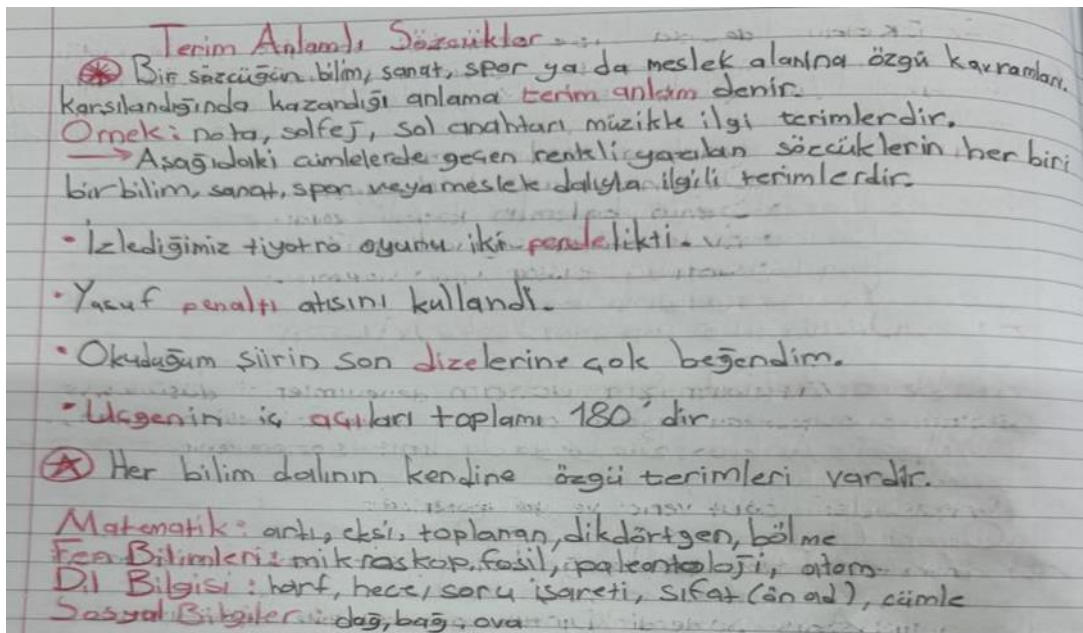 Terim Anlamlı Sözcükler
Bir sözcüğün bilim, sanat, spor ya da meslek alanına özgü kavramları
karşılandığında kazandığı anlama terim anlam denir.
Örnek: nota, solfej, sol anahtarı müzikle ilgi terimlerdir.
→ Aşağıdaki cümlelerde geçen renkli yazılan sözcüklerin her biri
bir bilim, sanat, spor veya meslek dalıyla ilgili terimlerdir.
• İzlediğimiz tiyatro oyunu iki perdelikti.
• Yusuf penaltı atışını kullandı.
• Okuduğum şiirin son dizelerine çok beğendim.
• Üçgenin iç açıları toplamı 180° dir
Her bilim dalının kendine özgü terimleri vardır.
Matematik: artı, eksi, toplanan, dikdörtgen, bölme
Fen Bilimleri: mikroskop, fosil, paleontoloji, atom
Dil Bilgisi: harf, hece, soru işareti, sıfat (ön ad), cümle
Sosyal Bilgiler: dağ, bağ, ova